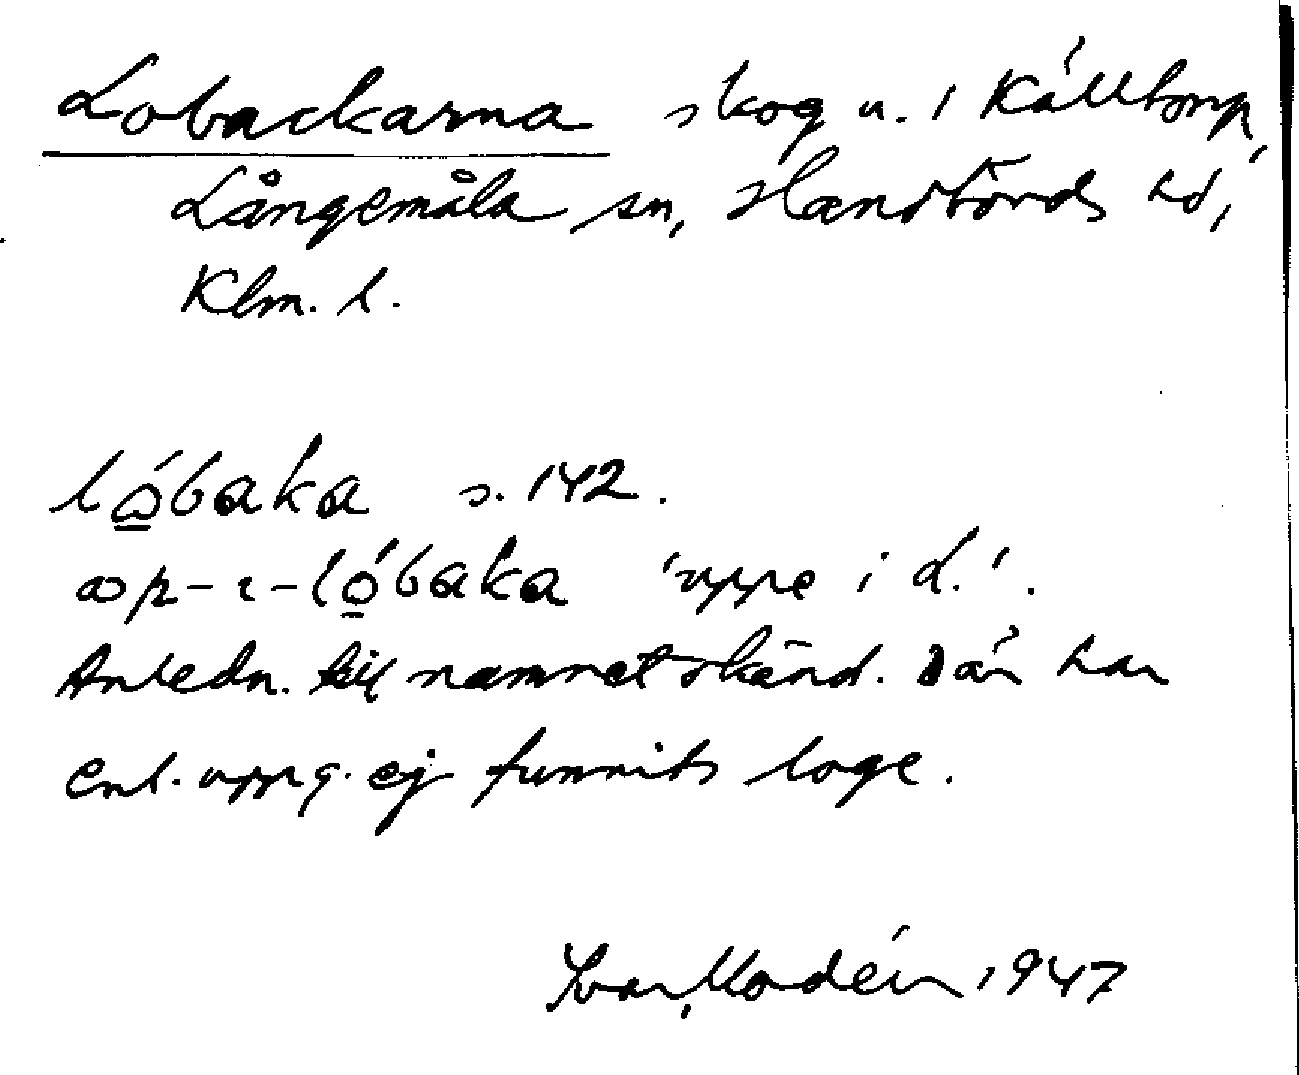 Lobackarna skog n. i Källtorp,
Långemåla sn, Handbörds hd,
Klm. l.
lo̲´baka s. 142.
op-ı-lo̲´baka 'uppe i L.'.
Anledn. till namnet okänd. Där har
enl. uppg. ej funnits loge.
Ivar Modéer 1947